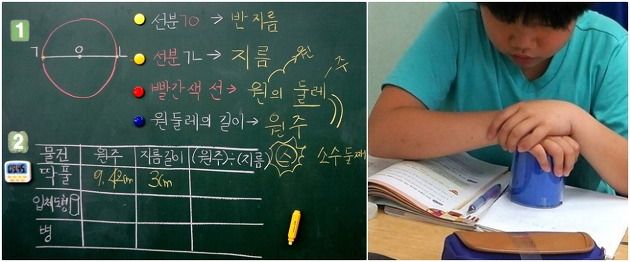 1
선분 ㄱㅇ → 반지름
원
ㄱ ㅇ ㄴ
선분 ㄱㄴ → 지름
주
빨간색 선 → 원의 둘레
원 둘레의 길이 → 원주
2
물건 원주 지름길이 (원주)÷(지름) 소수 둘째
딱풀 9.42cm 3cm
입체도형
병